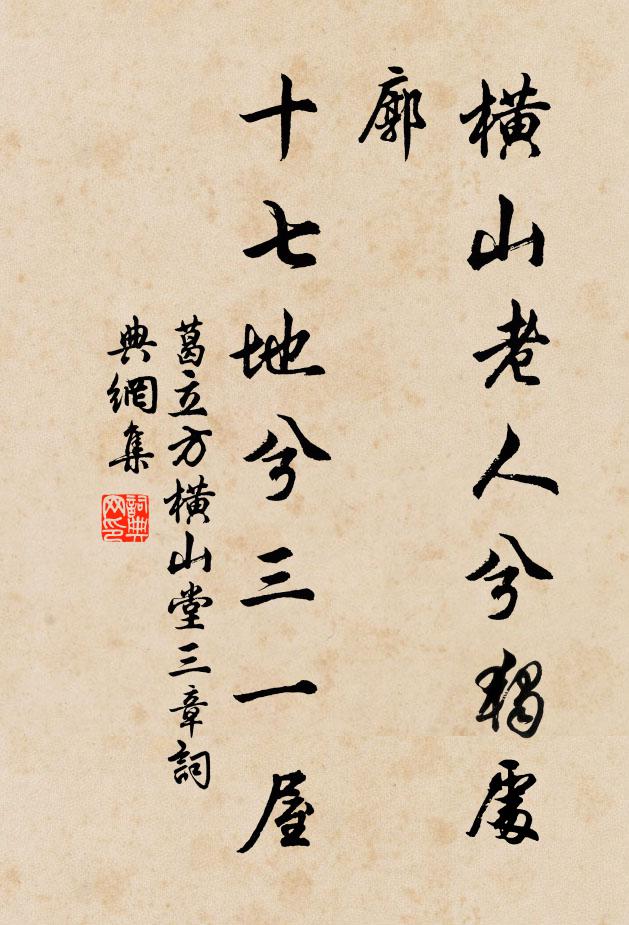 橫山老人兮獨處
廓
十七地兮三一屋
葛立方橫山堂三章詞
典網集
詞典網印